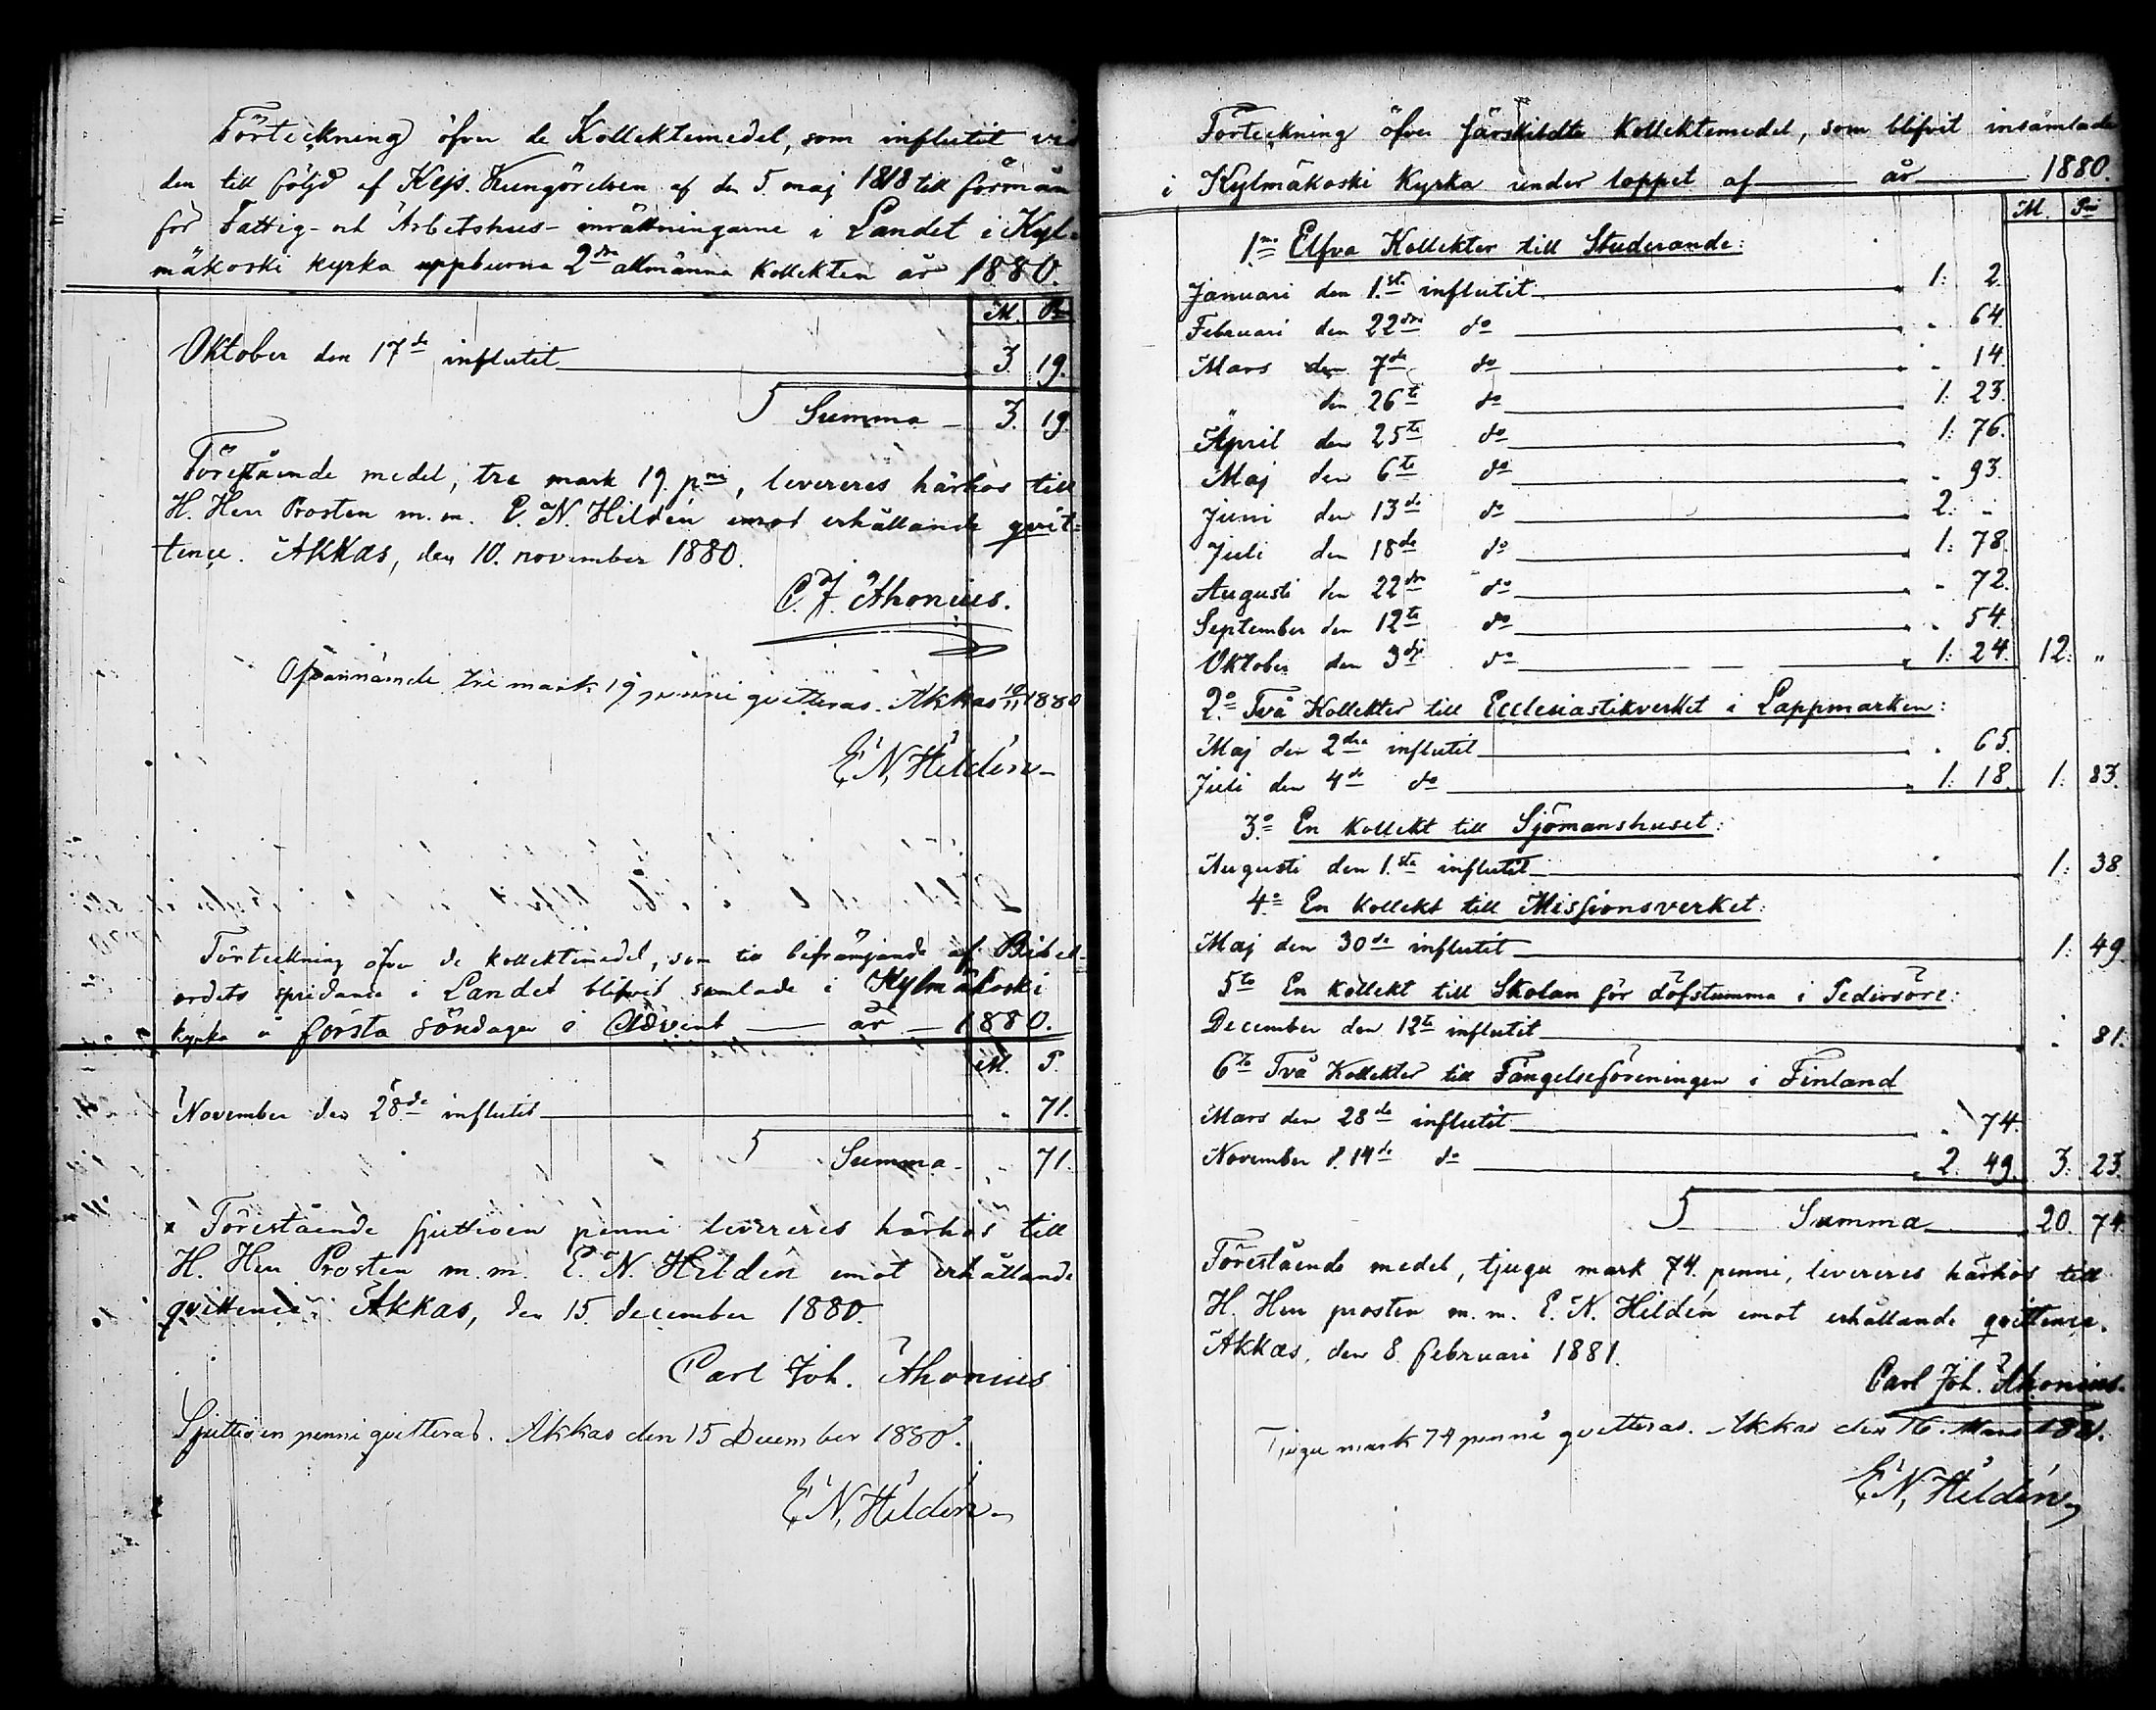 Förteckning öfver de Kollektemedel, som influtit vid
den till följd af Kejs. Kungörelsen af den 5. maj 1818 till förmån
för Fattig- och Arbetshus-inrättningarne i Landet i Kyl-
mäkoski kyrka uppburna 2dra allmänna Kollekten år 1880.
M. Pni
Oktober den 17de influtit 3. 19.
Summa 3. 19
Förestående medel, tre mark 19 pni, levereres härhos till
H. Herr Prosten m.m. E. N. Hildén emot erhållande qvit-
tence. Akkas, den 10. november 1880.
C. J. Ahonius.
Ofvannämde tre mark 19 penni qvitteras. Akkas 10/11 1880
E. N. Hildén
Förteckning öfver de kollektemedel, som till befrämjande af Bibel-
ordets spridande i Landet blifvit samlade i Kylmäkoski
kyrka å första söndagen i Advent år 1880.
M. P.
November den 28de influtit " 71.
Summa " 71.
Förestående sjuttioen penni levereres härhos till
H. Herr Prosten m.m. E. N. Hildén emot erhållande
qvittence. Akkas, den 15. december 1880.
Carl Joh. Ahonius
Sjuttioen penni qvitteras. Akkas den 15 December 1880.
E. N. Hildén
Förteckning öfver särskildta Kollektemedel, som blifvit insamlade
i Kylmäkoski Kyrka under loppet af år 1880.
M. Pni
1mo Elfva Kollekter till Studerande:
Januari den 1.sta influtit 1: 2.
Februari den 22dra do " 64.
Mars den 7de do " 14.
" den 26te do 1: 23.
April den 25te do 1: 76.
Maj den 6te do " 93.
Juni den 13de do 2: "
Juli den 18de do 1: 78.
Augusti den 22dra do " 72.
September den 12te do " 54.
Oktober den 3dje do 1: 24. 12: "
2o Två Kollekter till Ecclesiastikverket i Lappmarken:
Maj den 2dra influtit " 65.
Juli den 4de do 1: 18. 1: 83.
3.o En kollekt till Sjömanshuset:
Augusti den 1.sta influtit 1: 38
4.o En Kollekt till Missionsverket:
Maj den 30de influtit 1: 49.
5to En kollekt till Skolan för döfstumma i Pedersöre:
December den 12te influtit " 81.
6to Två Kollekter till Fångelseföreningen i Finland
Mars den 28de influtit " 74.
November d. 14de do 2: 49. 3: 23.
Summa 20. 74
Förestående medel, tjugu mark 74. penni, levereres härhos till
H. Herr prosten m.m. E. N. Hildén emot erhållande qvittence.
Akkas, den 8. februari 1881.
Carl Joh. Ahonius.
Tjugu mark 74 penni qvitteras. Akkas den 16. Mars 1881.
E. N. Hildén